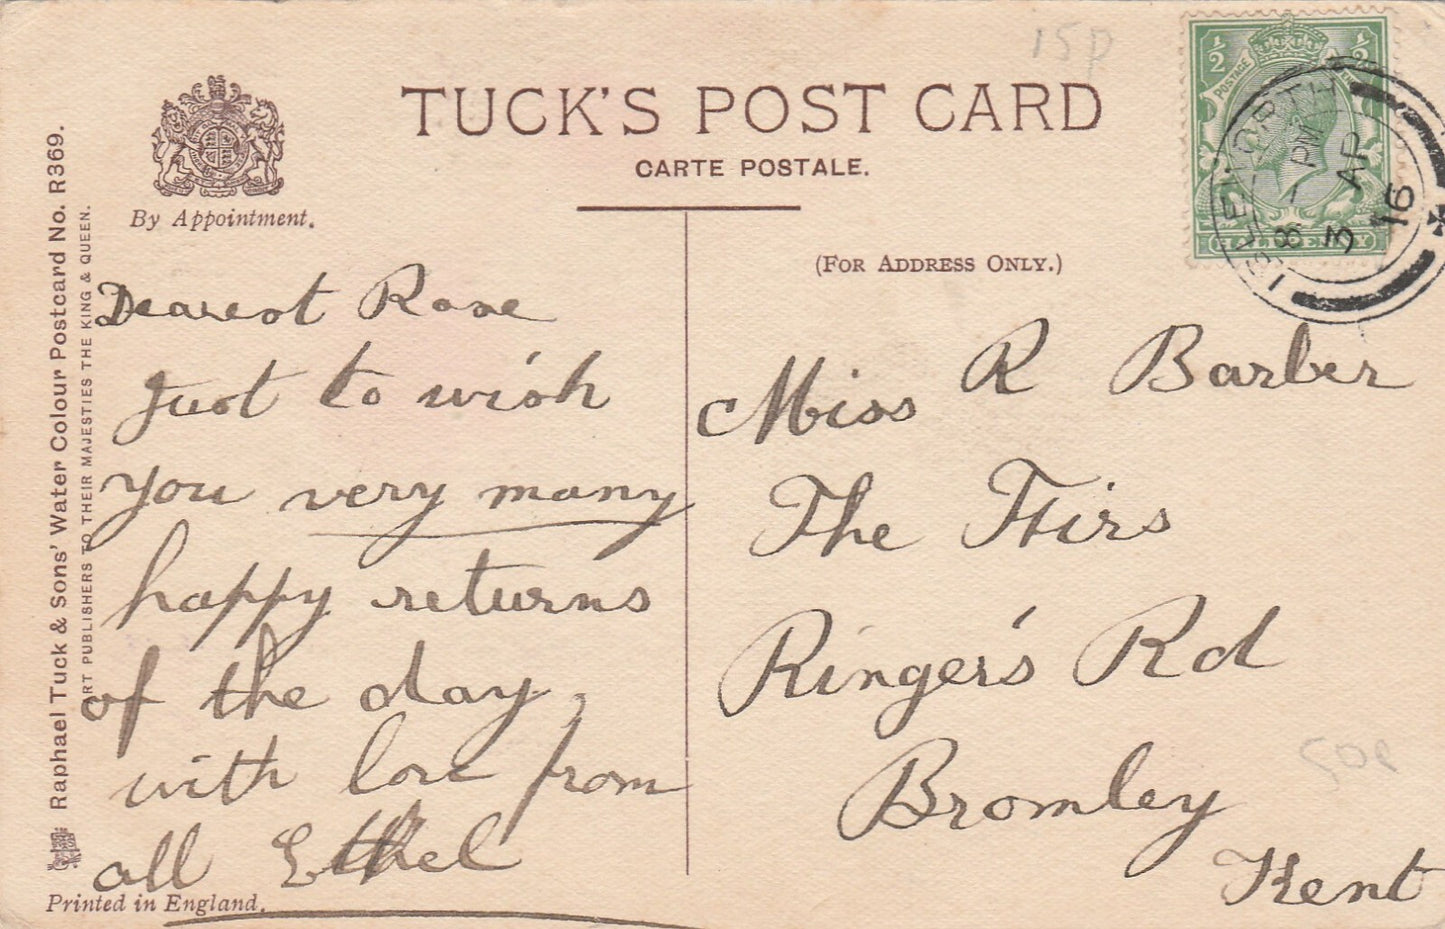 15p
TUCK'S POST CARD
CARTE POSTALE.
By Appointment.
(FOR ADDRESS ONLY.)
1/2 1/2
POSTAGE
HALFPENNY
8 - PM
3 AP
16
Raphael Tuck & Sons' Water Colour Postcard No. R369.
ART PUBLISHERS TO THEIR MAJESTIES THE KING & QUEEN.
Dearest Rose
Just to wish
you very many
happy returns
of the day,
with love from
all Ethel
Printed in England.
Miss R Barber
The Firs
Ringer's Rd
Bromley
Kent
50p